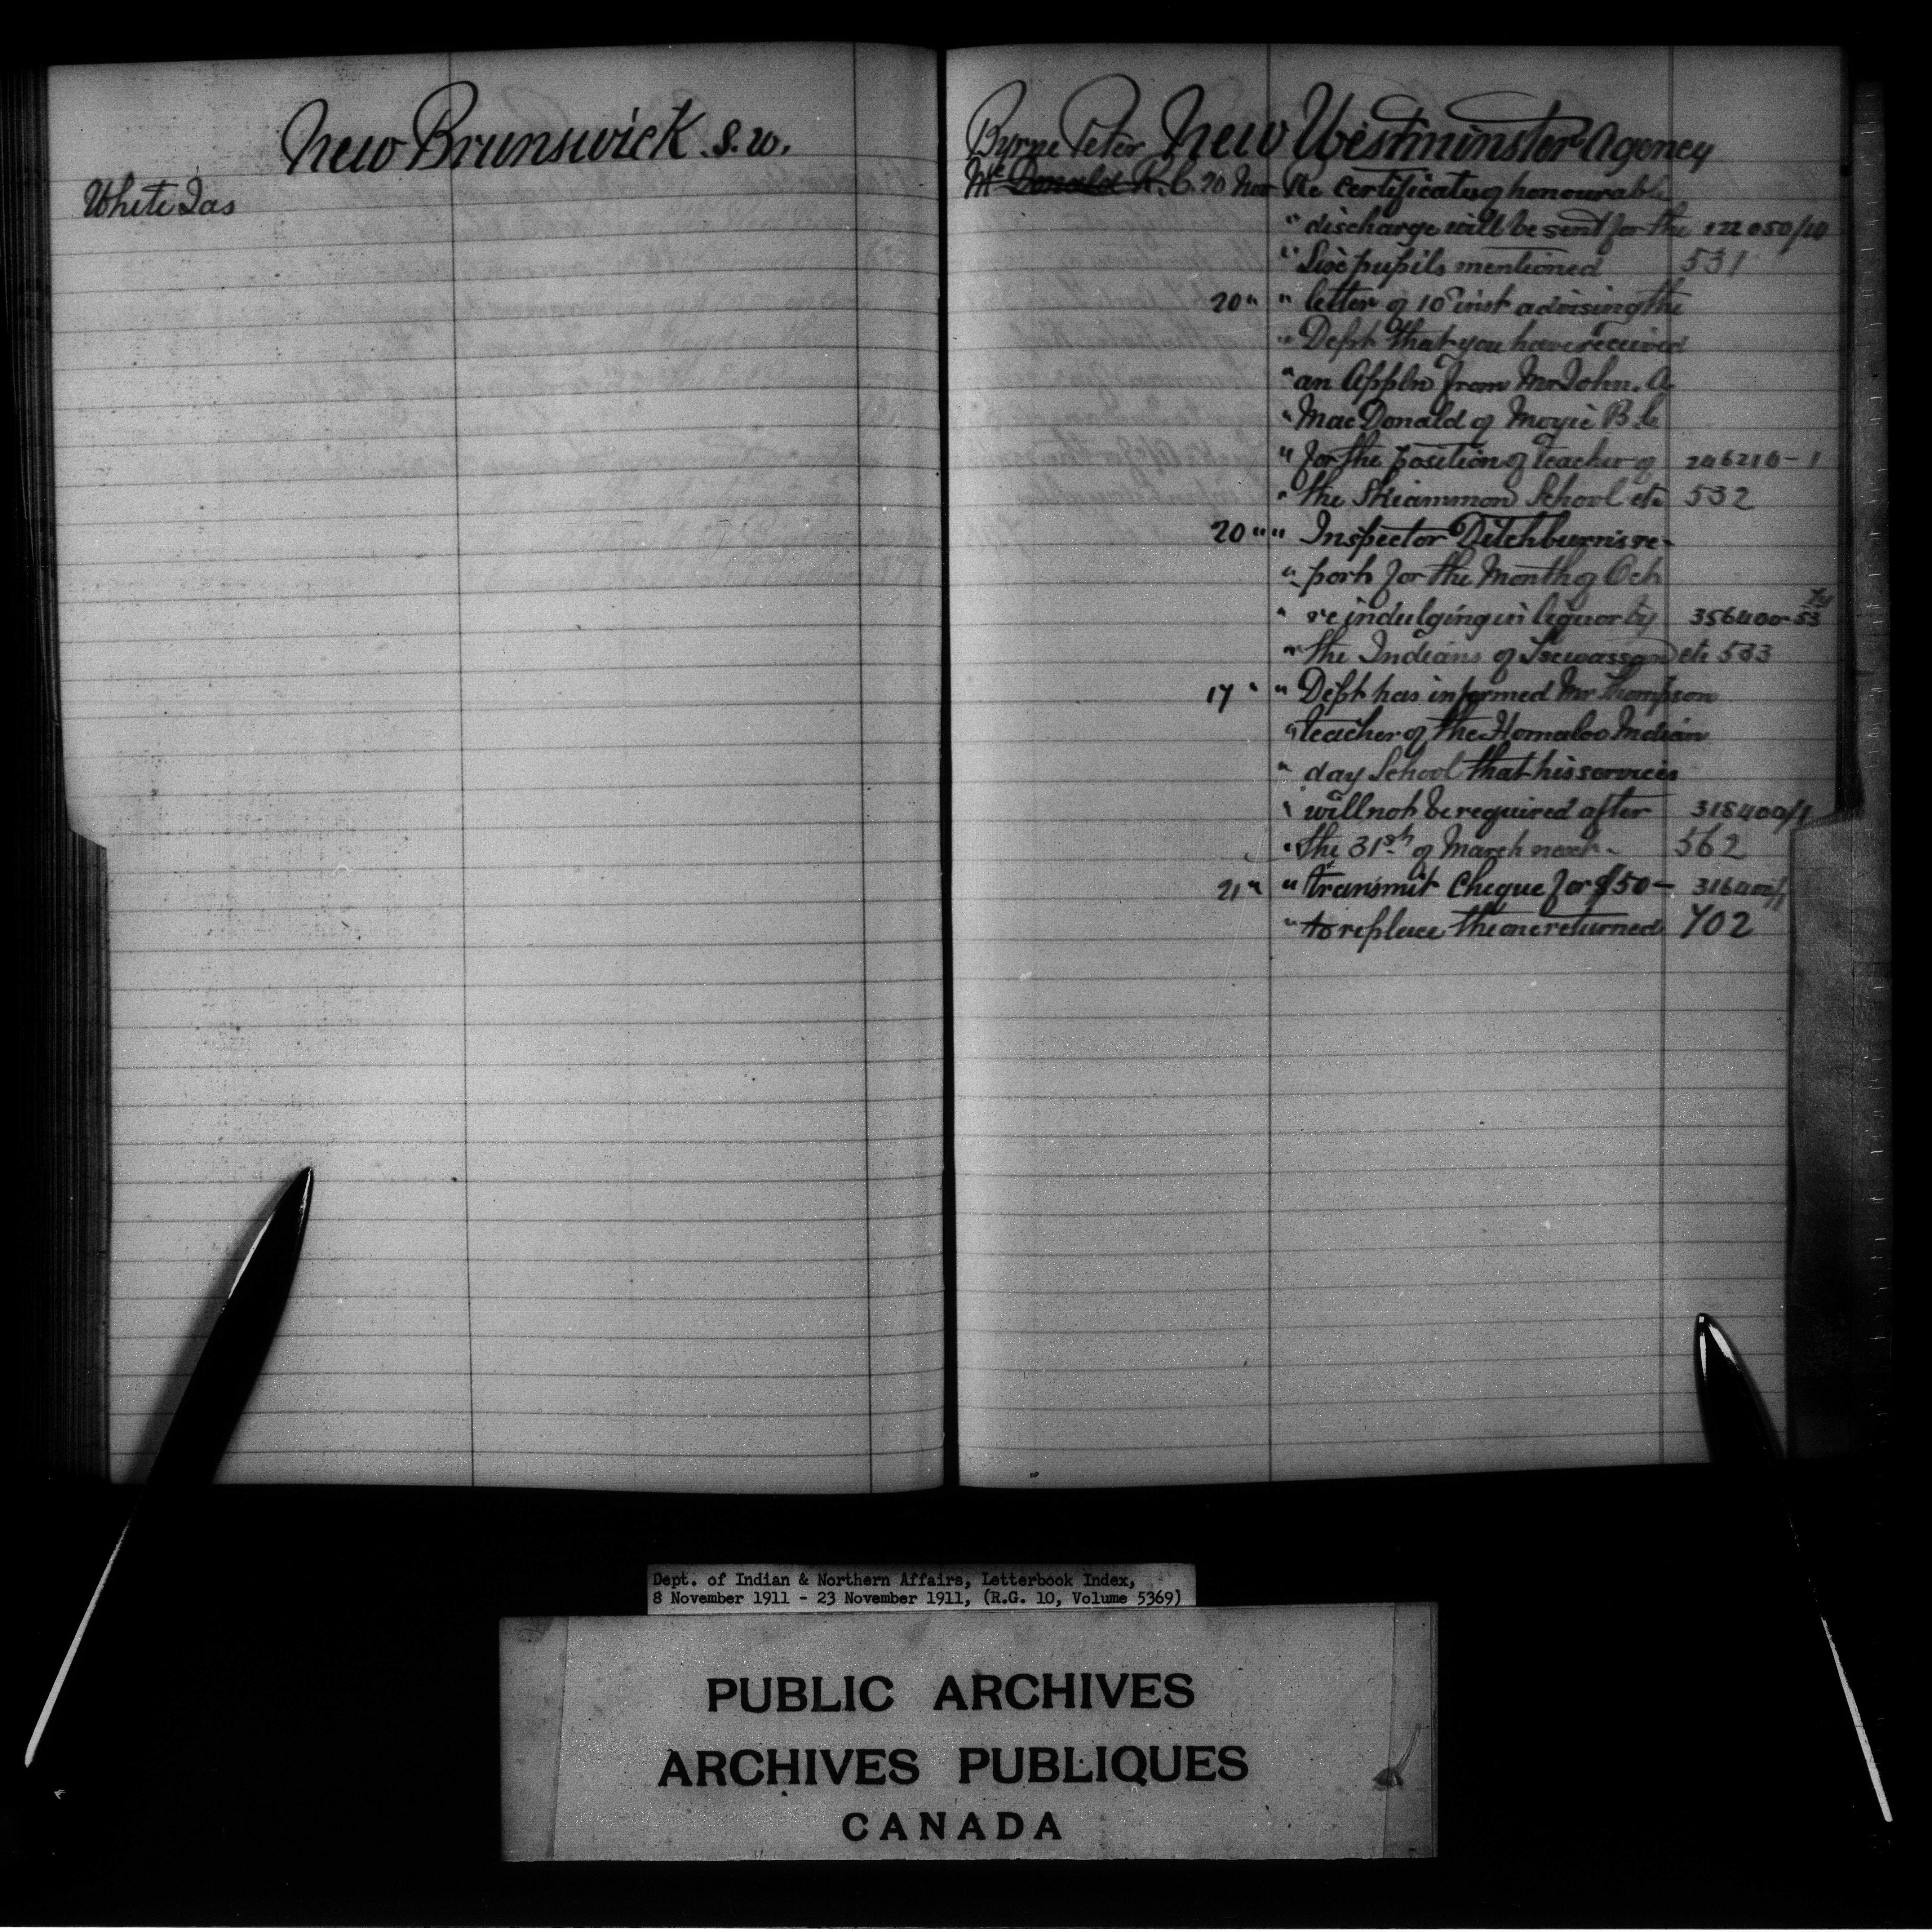 New Brunswick S. W.
White Jas
Byrne Peter New Westminster Agency
Mc Donald R. C. 20 Nov Re certificates of honourable
" discharge will be sent for the 122050/10
" Six pupils mentioned 531
20 " " letter of 10th inst advising the
" Dept that you have received
" an Appln from Mr John. A.
" MacDonald of Moyie B C
" for the position of teacher of 246210-1
" the Skiammon School etc 532
20 " " Inspector Ditchburn's re-
" port for the Month of Oct
" re indulging in liquor by 356400-53
" the Indians of Tsewassan etc 533
17 " " Dept has informed Mr Thompson
" teacher of the Homalco Indian
" day School that his services
" will not be required after 318400/1
" the 31st of March next - 562
21 " " transmit cheque for $50 - 316400/1
" to replace the one returned 702
Dept. of Indian & Northern Affairs, Letterbook Index,
8 November 1911 - 23 November 1911, (R.G. 10, Volume 5369)
PUBLIC ARCHIVES
ARCHIVES PUBLIQUES
CANADA